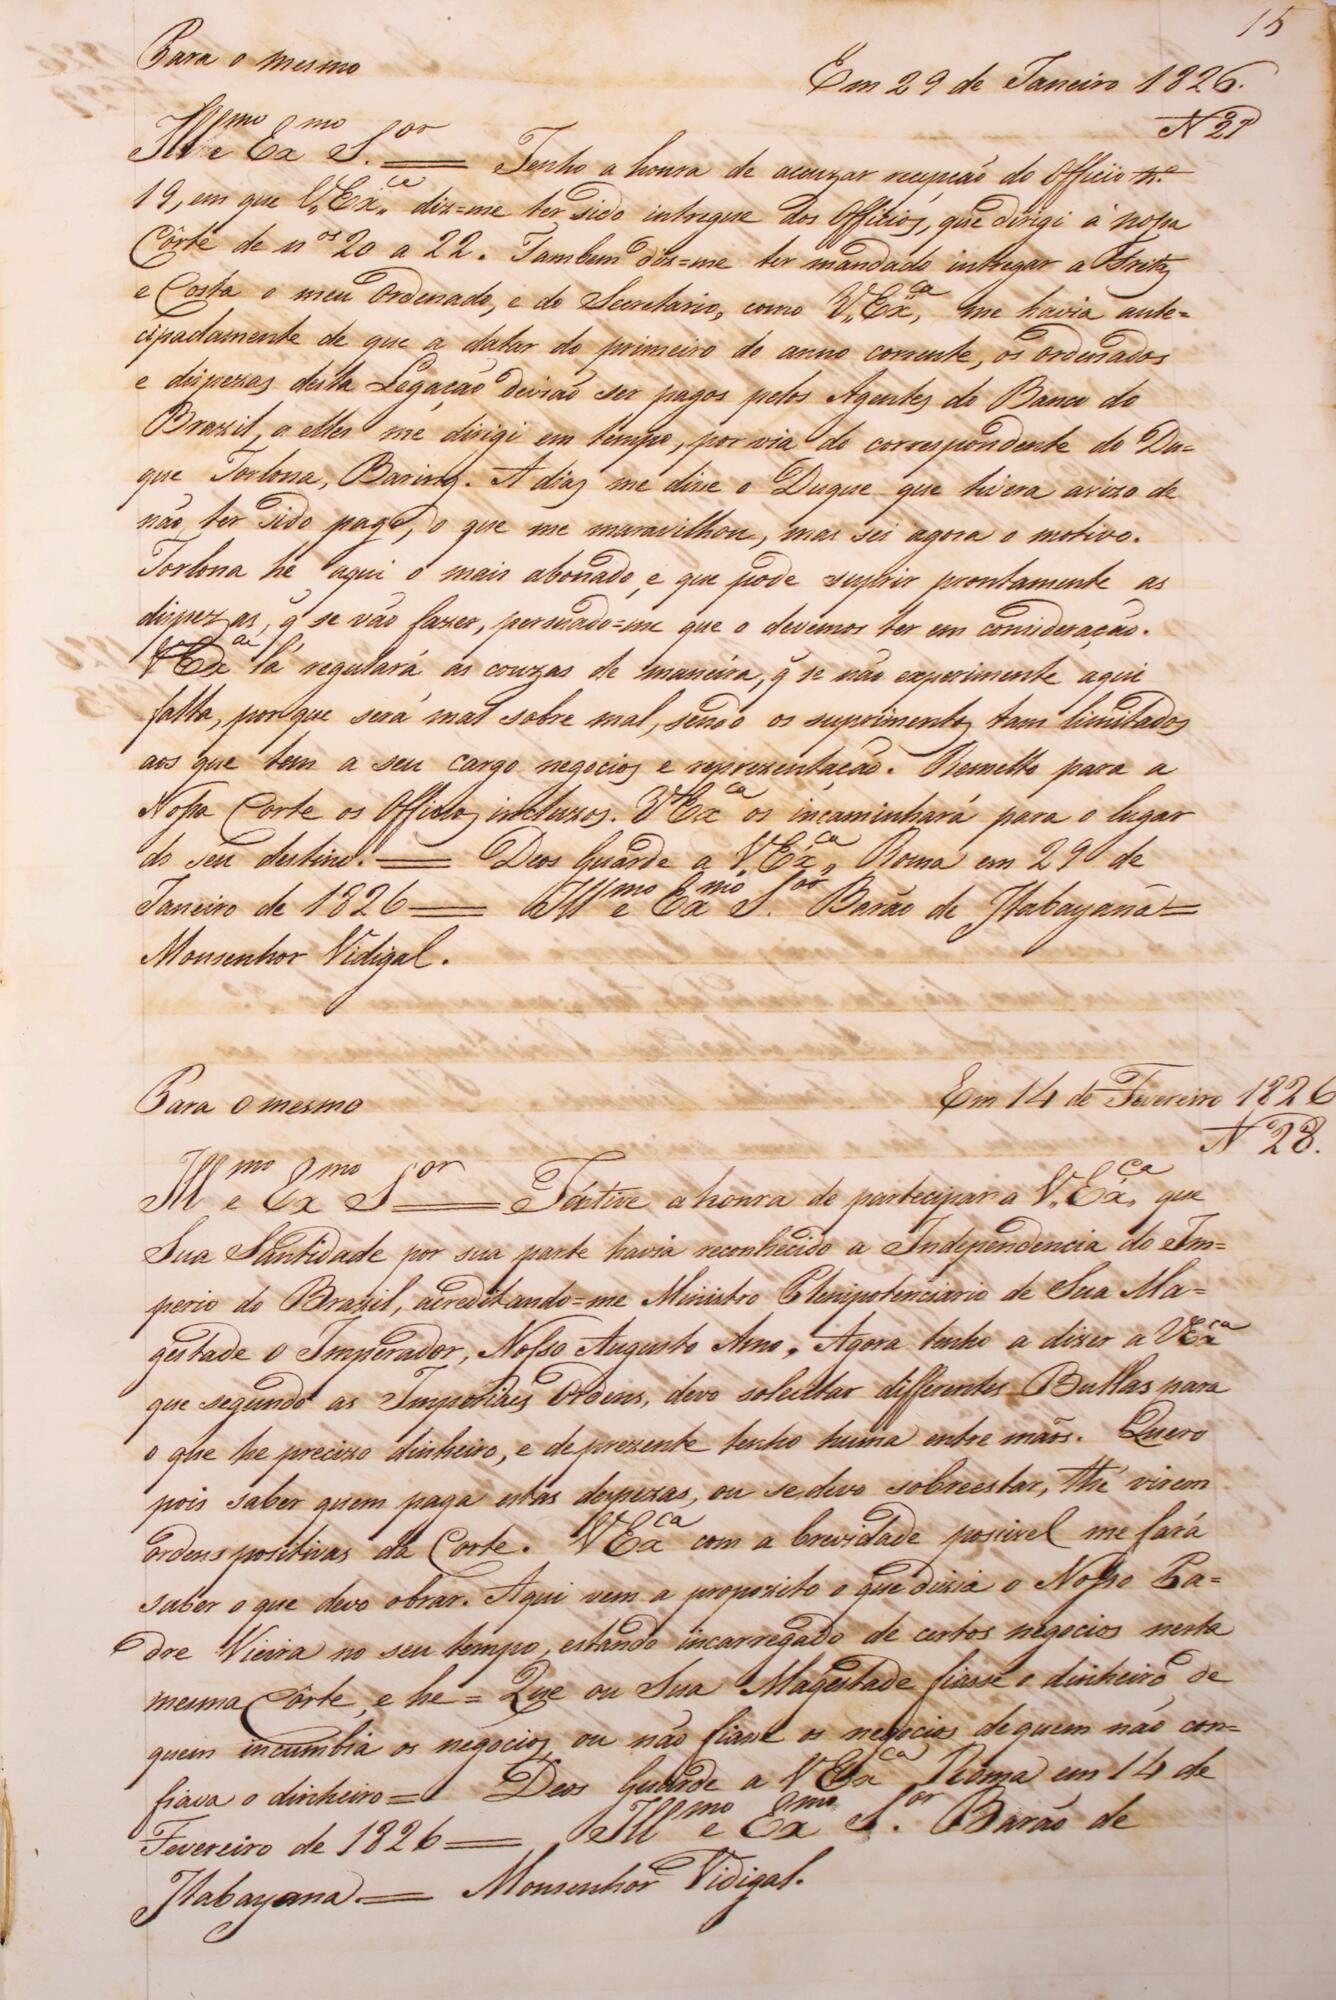 15
Para o mesmo
Em 29 de Janeiro 1826.
N 27
Ill.mo e Ex.mo S.or == Tenho a honra de accuzar recepção do Officio n.o
19, em que V. Ex.ca diz=me ter sido intregue dos Officios, que dirigi á nossa
Côrte de n.os 20 a 22. Tambem diz=me ter mandado intregar a Freitas
e Costa o meu Ordenado, e do Secretario, como V. Ex.ca, me havia ante=
cipadamente de que a datar do primeiro do anno corrente, os ordenados
e dispezas desta Legação devião ser pagos pelos Agentes do Banco do
Brazil, a elles me dirigi em tempo, por via do correspondente do Du=
que Torlona, Baring. A dias me disse o Duque que tivera avizo de
não ter sido pago, o que me maravilhou, mas sei agora o motivo.
Torlona he aqui o mais abonado, e que póde suprir prontamente as
dispezas, q̃ se vão fazer, persuado=me que o devemos ter em consideração.
V Ex.ca lá regulará as couzas de maneira, q̃ se não experimente aqui
falta, porque será mal sobre mal, sendo os suprimentos tam limitados
aos que tem a seu cargo negocios e reprezentação. Remetto para a
Nossa Corte os Officios incluzos. V Ex.ca os incaminhará para o lugar
do seu destino. == Deos Guarde a V. Ex.ca, Roma em 29 de
Janeiro de 1826 == Ill.mo e Ex.mo S.or Barão de Itabayana =
Monsenhor Vidigal.
Para o mesmo
Em 14 de Fevereiro 1826
N 28.
Ill.mo e Ex.mo S.or == Ja tive a honra de partecipar a V. Ex.ca, que
Sua Santidade por sua parte havia reconhecido a Independencia do Im=
perio do Brazil, acreditando=me Ministro Plenipotenciario de Sua Ma=
gestade o Imperador, Nosso Augusto Amo. Agora tenho a dizer a V Ex.ca
que segundo as Imperiaes Ordens, devo solicitar differentes Bullas para
o que he precizo dinheiro, e de prezente tenho huma entre mãos. Quero
pois saber quem paga estas despezas, ou se devo sobreestar, thé virem
ordens positivas da Corte. V Ex.ca com a brevidade possivel me fará
saber o que devo obrar. Aqui vem a proposito o que dizia o Nosso Pa=
dre Vieira no seu tempo, estando incarregado de certos negocios nesta
mesma Côrte, e he = Que ou Sua Magestade fiasse o dinheiro de
quem incumbia os negocios, ou não fiasse os negocios de quem não con=
fiava o dinheiro = Deos Guarde a V Ex.ca Roma em 14 de
Fevereiro de 1826 == Ill.mo e Ex.mo S.or Barão de
Itabayana. == Monsenhor Vidigal.